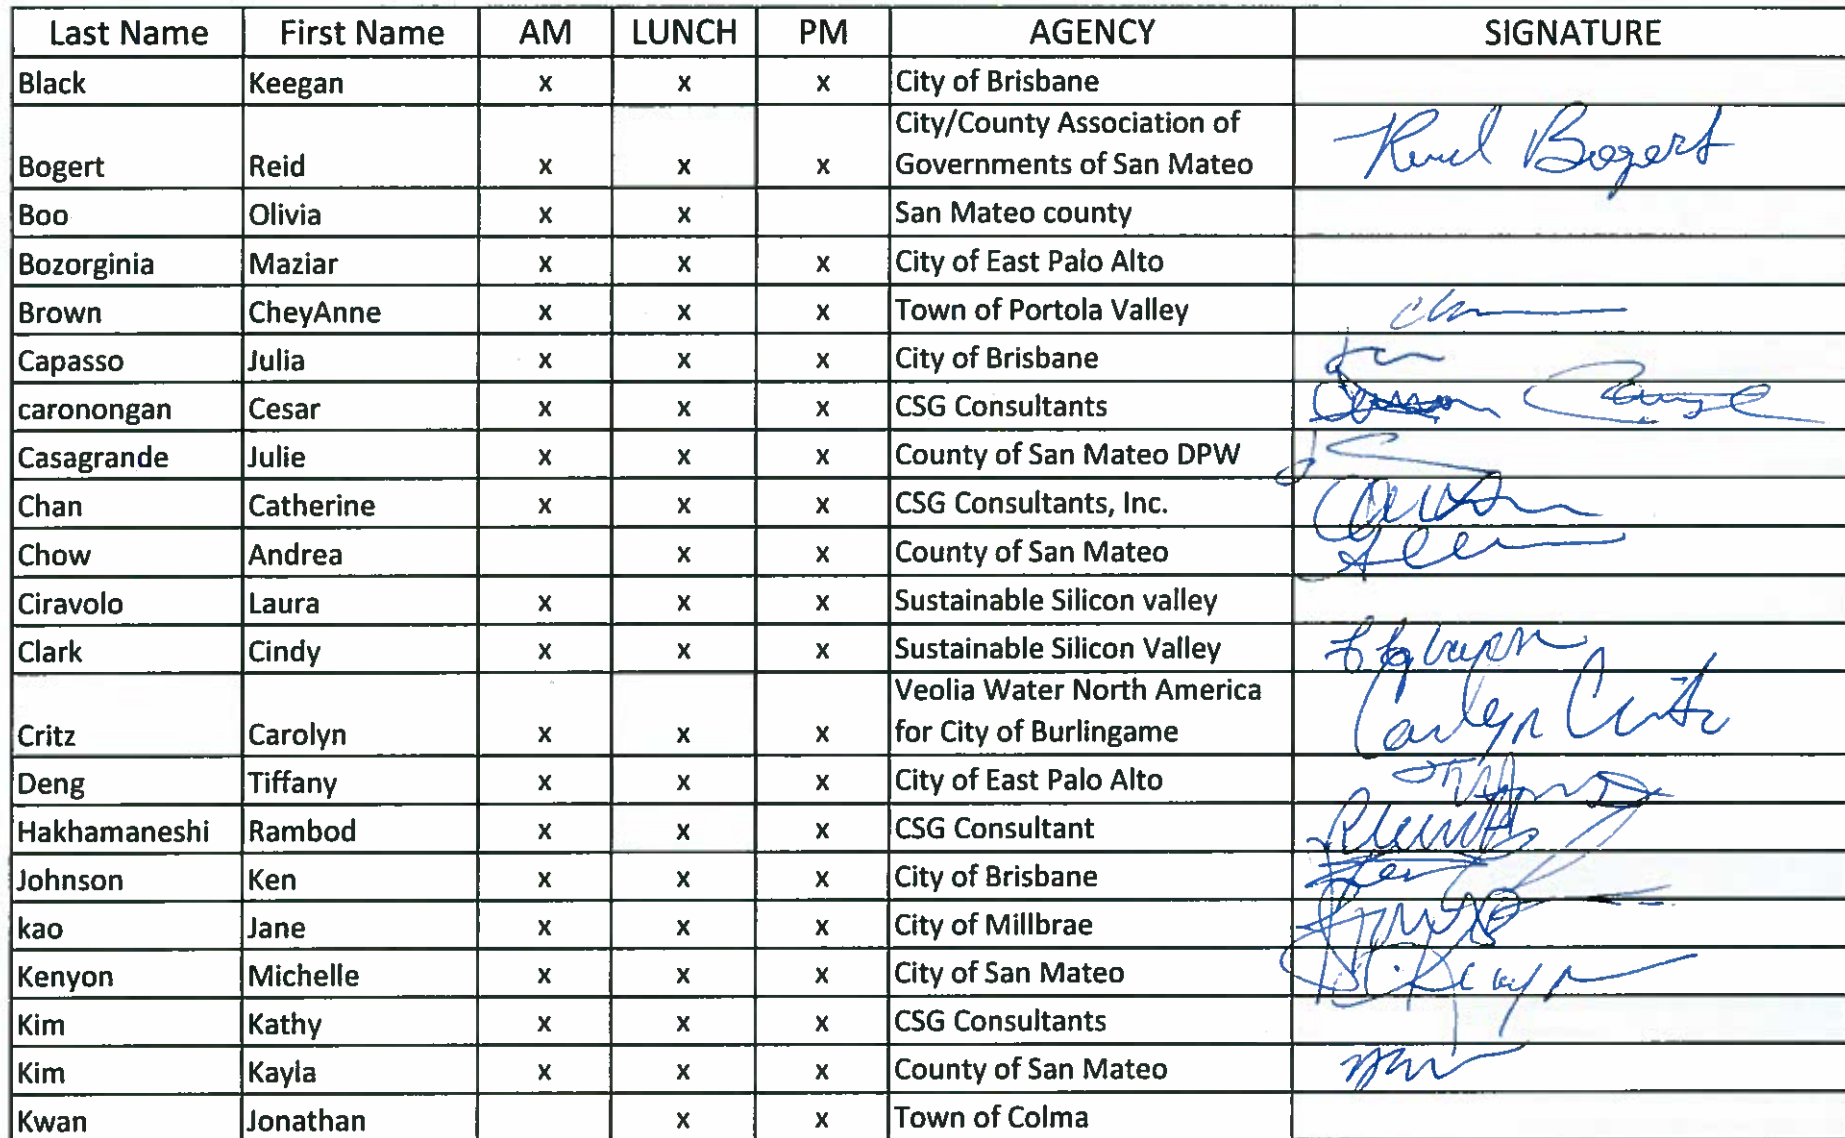 Last Name First Name AM LUNCH PM AGENCY SIGNATURE
Black Keegan x x x City of Brisbane
City/County Association of
Bogert Reid x x x Governments of San Mateo Reid Bogert
Boo Olivia x x San Mateo county
Bozorginia Maziar x x x City of East Palo Alto
Brown CheyAnne x x x Town of Portola Valley
Capasso Julia x x x City of Brisbane
caronongan Cesar x x x CSG Consultants
Casagrande Julie x x x County of San Mateo DPW
Chan Catherine x x x CSG Consultants, Inc.
Chow Andrea x x County of San Mateo
Ciravolo Laura x x x Sustainable Silicon valley
Clark Cindy x x x Sustainable Silicon Valley
Veolia Water North America
Critz Carolyn x x x for City of Burlingame Carolyn Critz
Deng Tiffany x x x City of East Palo Alto
Hakhamaneshi Rambod x x x CSG Consultant
Johnson Ken x x x City of Brisbane
kao Jane x x x City of Millbrae
Kenyon Michelle x x x City of San Mateo
Kim Kathy x x x CSG Consultants
Kim Kayla x x x County of San Mateo
Kwan Jonathan x x Town of Colma